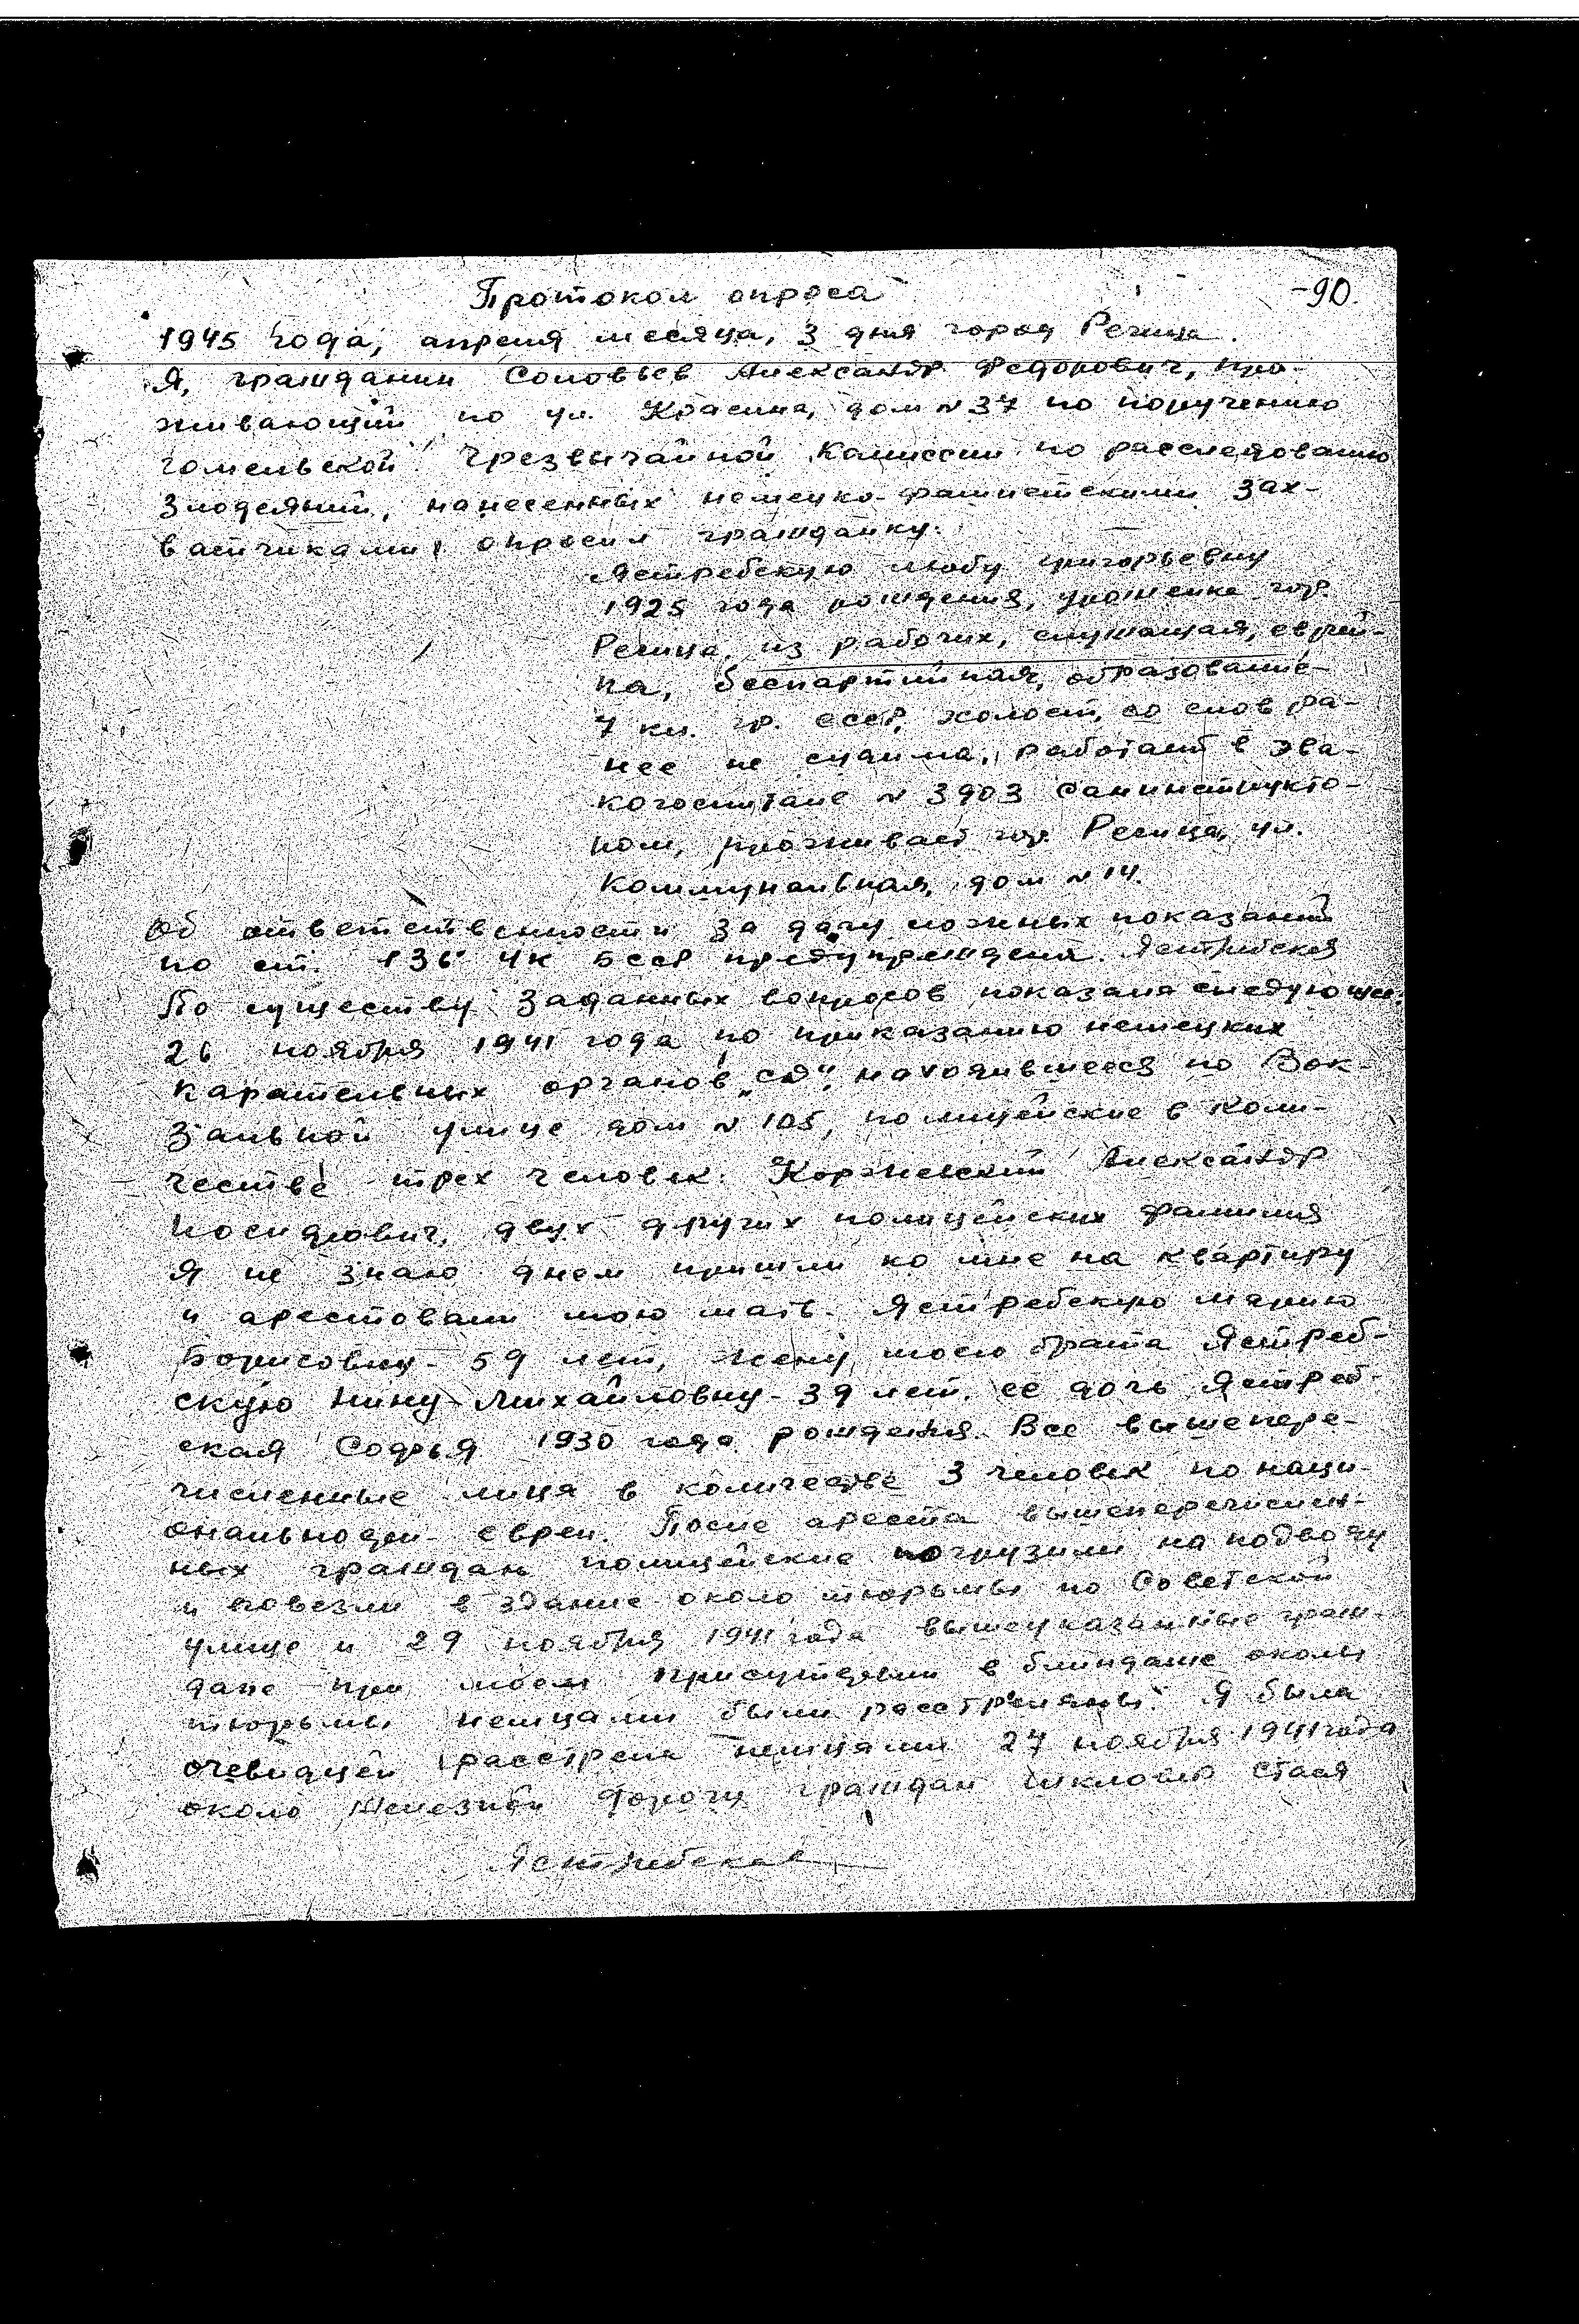 -90.
Протокол опроса
1945 года, апреля месяца, 3 дня город Речица.
Я, гражданин Соловьев Александр Федорович, про-
живающий по ул. Красина, дом №37 по поручению
гомельской Чрезвычайной Комиссии по расследованию
злодеяний, нанесенных немецко-фашистскими зах-
ватчиками, опросил гражданку:
Ястребскую Любу Григорьевну
1925 года рождения, уроженка гор.
Речица, из рабочих, служащая, еврей-
ка, беспартийная, образование
7 кл. гр. СССР, холост, со слов ра-
нее не судима, работает в эва-
когоспитале № 3903 санинструкто-
ром, проживает гор. Речица, ул.
Коммунальная, дом №14.
Об ответственности за дачу ложных показаний
по ст. 136 УК БССР предупреждена. Ястребская
По существу заданных вопросов показала следующее:
26 ноября 1941 года по приказанию немецких
карательных органов „СД", находившееся по Вок-
зальной улице дом №105, полицейские в коли-
честве трех человек: Коржевский Александр
двух других полицейских фамилия
я не знаю днем пришли ко мне на квартиру
и арестовали мою мать - Ястребскую Марию
Борисовну - 59 лет, жену моего брата Ястреб-
скую Нину Михайловну - 39 лет, ее дочь Ястреб-
ская Софья 1930 года рождения. Все вышепере-
численные лица в количестве 3 человек по наци-
ональности евреи. После ареста вышеперечислен-
ных граждан полицейские погрузили на подводу
и повезли в здание около тюрьмы по Советской
улице и 29 ноября 1941 года вышеуказанные граж-
дане при моем присутствии в блиндаже около
тюрьмы немцами были расстреляны. Я была
очевидцей расстрела немцами 27 ноября 1941 года
около железной дороги граждан Стася
Ястребская